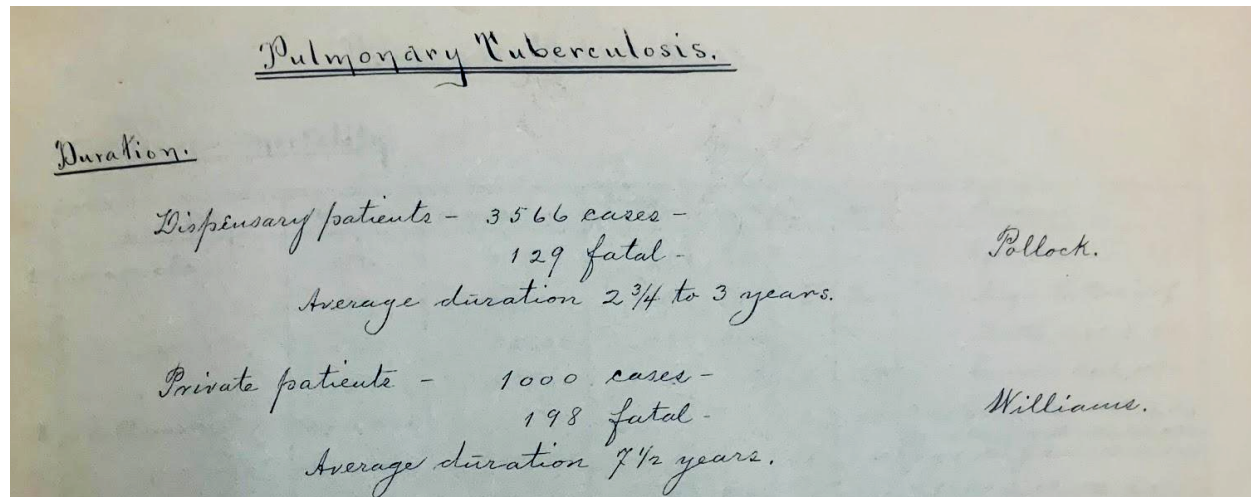 Pulmonary Tuberculosis.
Duration.
Dispensary patients - 3566 cases -
129 fatal - Pollock.
Average duration 2 3/4 to 3 years.
Private patients - 1000 cases -
198 fatal - Williams.
Average duration 7 1/2 years.